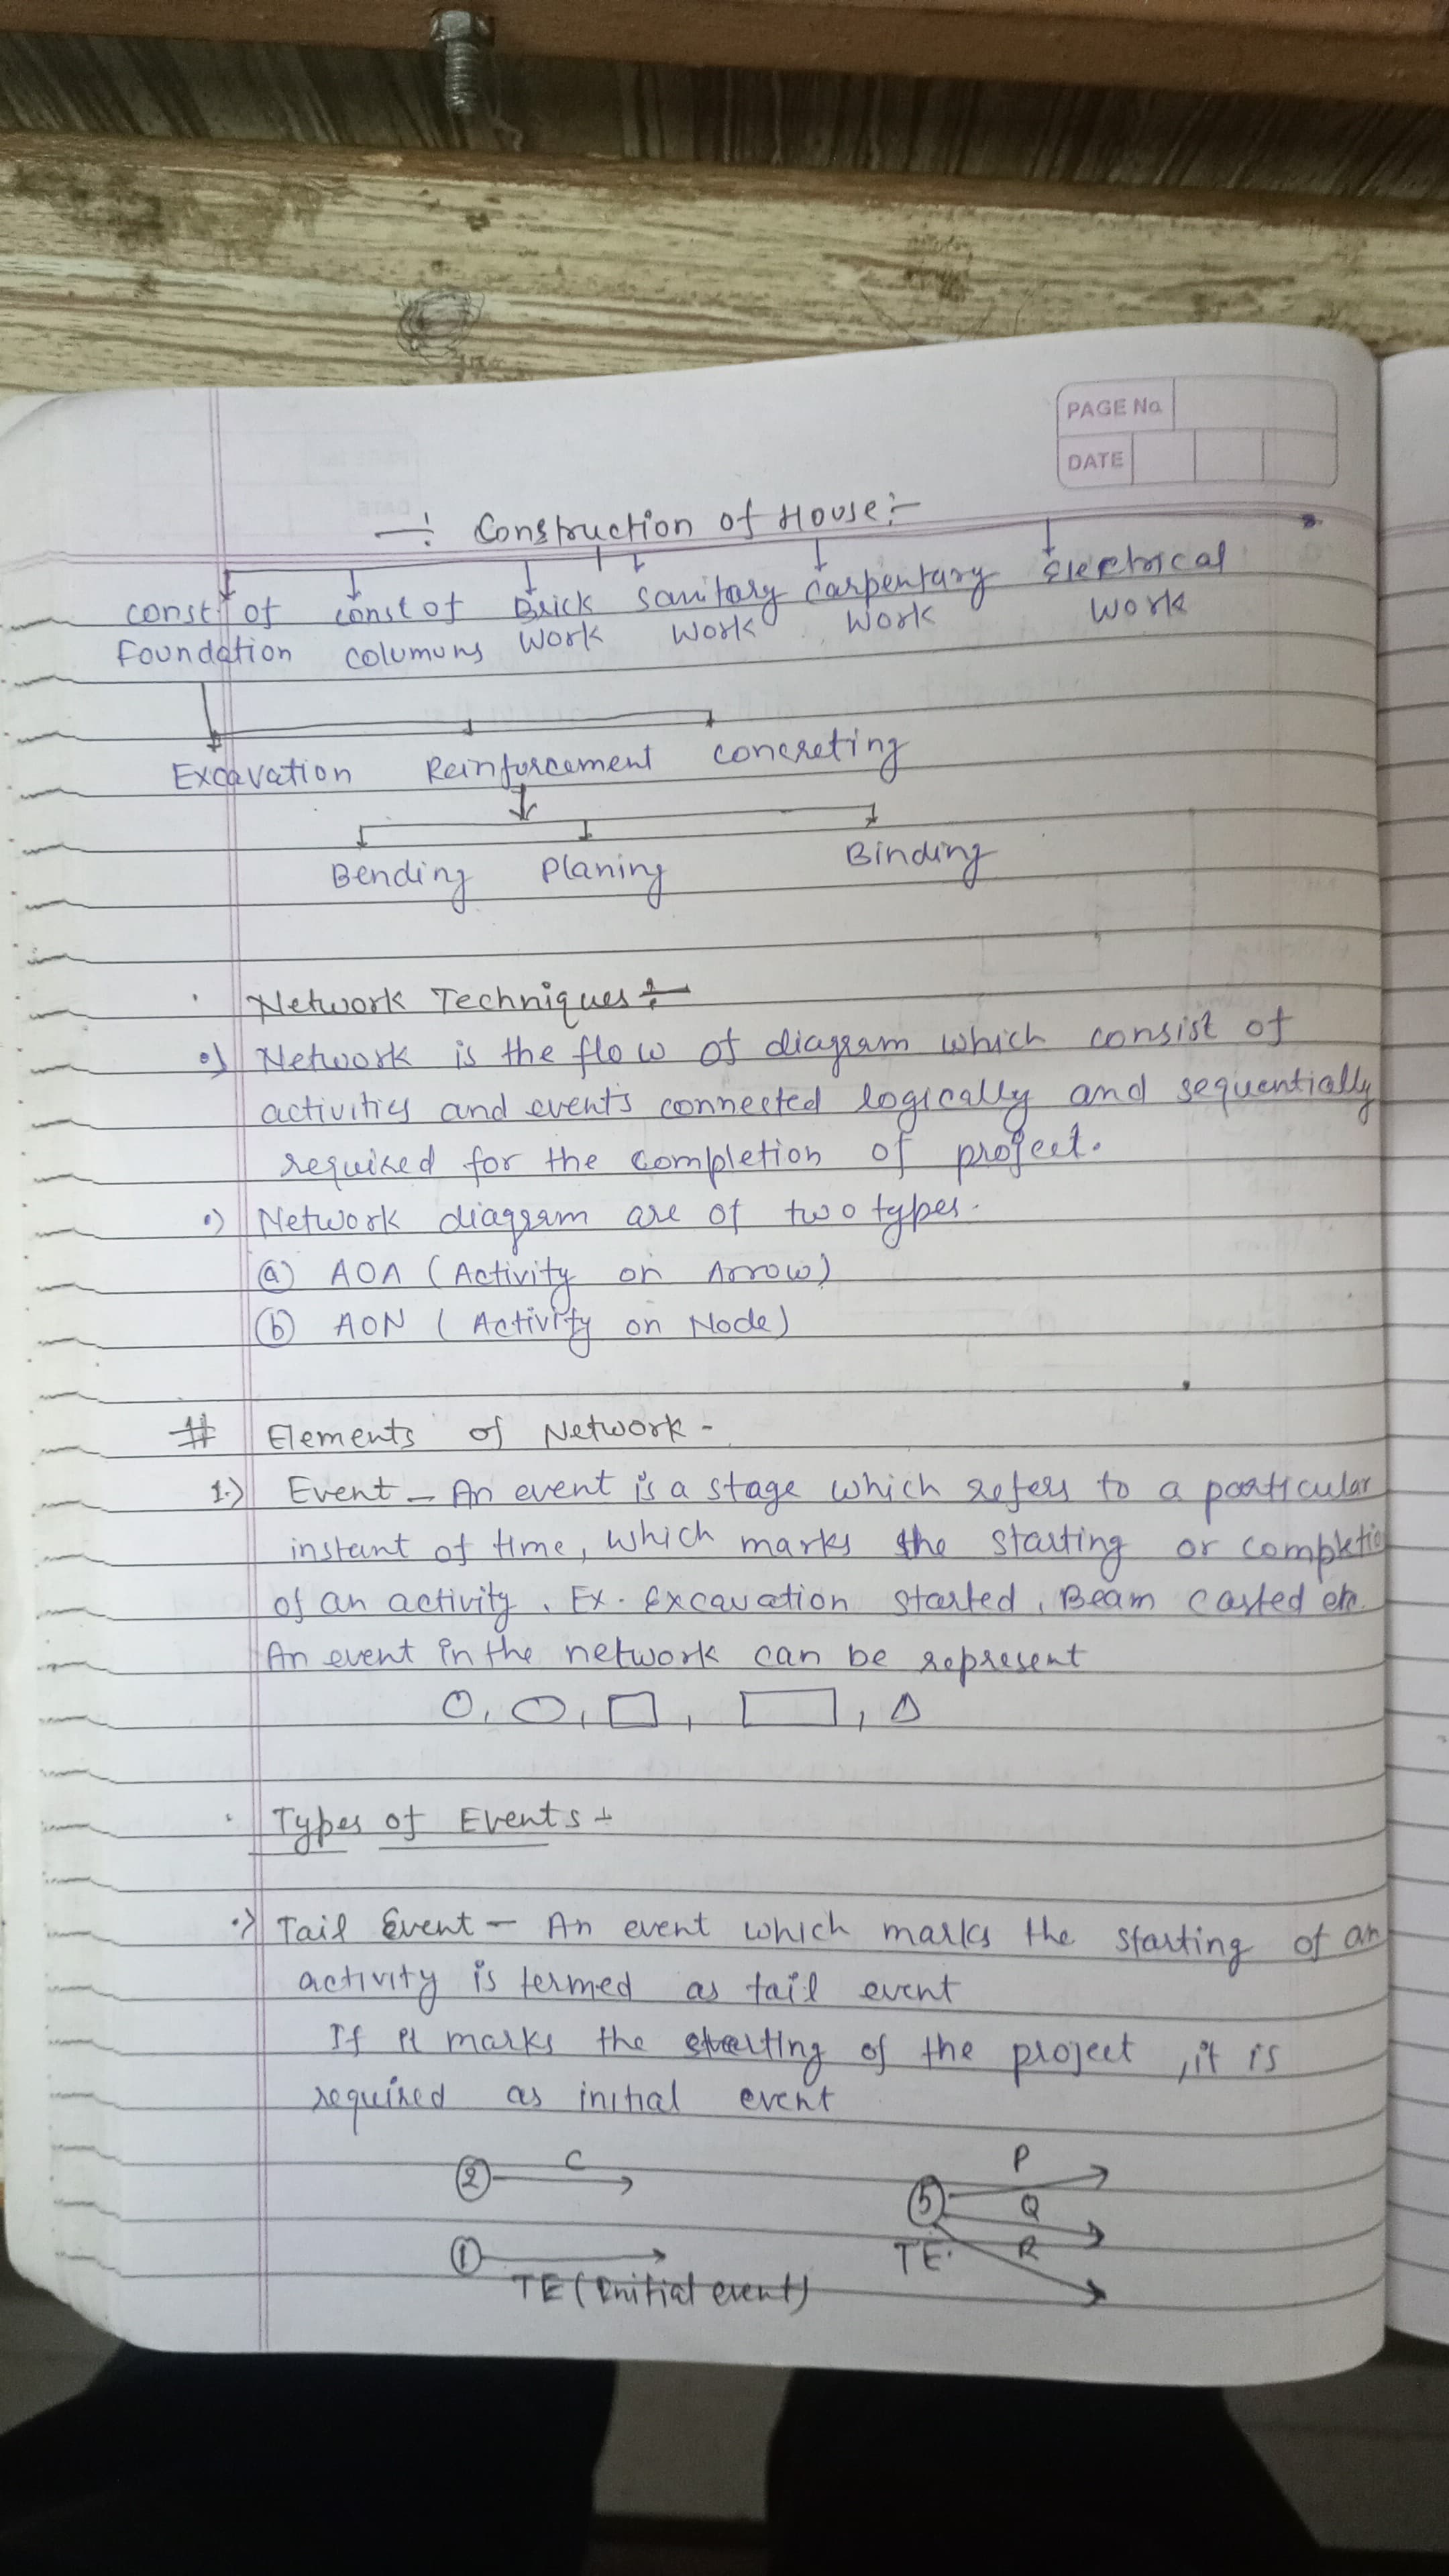 PAGE No.
DATE
Construction of House:-
const of const of Brick Sanitary Carpentary Electrical
foundation columuns Work Work Work Work
Excavation Reinforcement concreting
Bending Planing Binding
Network Techniques:-
Network is the flow of diagram which consist of
activities and events connected logically and sequentially
required for the completion of project.
Network diagram are of two types.
(a) AOA (Activity on Arrow)
(b) AON (Activity on Node)
# Elements of Network -
1.) Event - An event is a stage which refers to a particular
instant of time, which marks the starting or completio
of an activity. Ex. Excavation started, Beam casted etc.
An event in the network can be represent
Types of Events -
Tail Event - An event which marks the starting of an
activity is termed as tail event
If it marks the starting of the project, it is
required as initial event
2 C P
5 Q
1 TE. R
TE (Initial event)